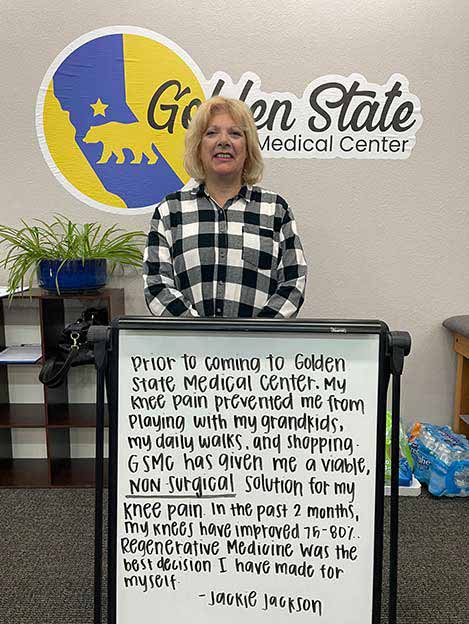 Golden State
Medical Center
Prior to coming to Golden
State Medical Center. My
knee pain prevented me from
playing with my grandkids,
my daily walks, and shopping.
GSMC has given me a viable,
non surgical solution for my
knee pain. In the past 2 months,
my knees have improved 75-80%.
Regenerative Medicine was the
best decision I have made for
myself.
- Jackie Jackson